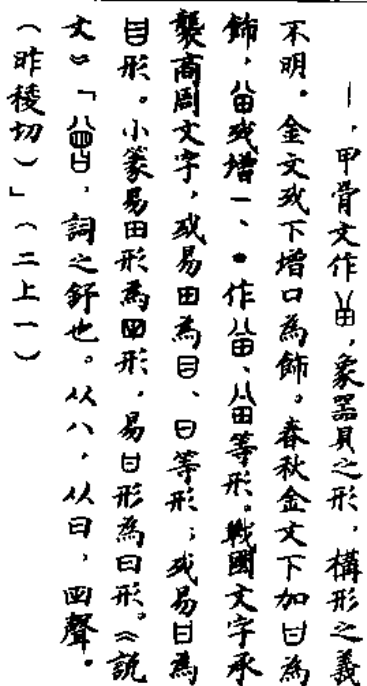 ｜，甲骨文作，象器具之形，構形之義
不明。金文或下增口為飾。春秋金文下加甘為
飾，或增一、•作、等形。戰國文字承
襲商周文字，或易田為目、日等形；或易甘為
目形。小篆易田形為囧形，易甘形為曰形。《說
文》「，詞之舒也。从八，从曰，囧聲。
（昨稜切）」（二上一）